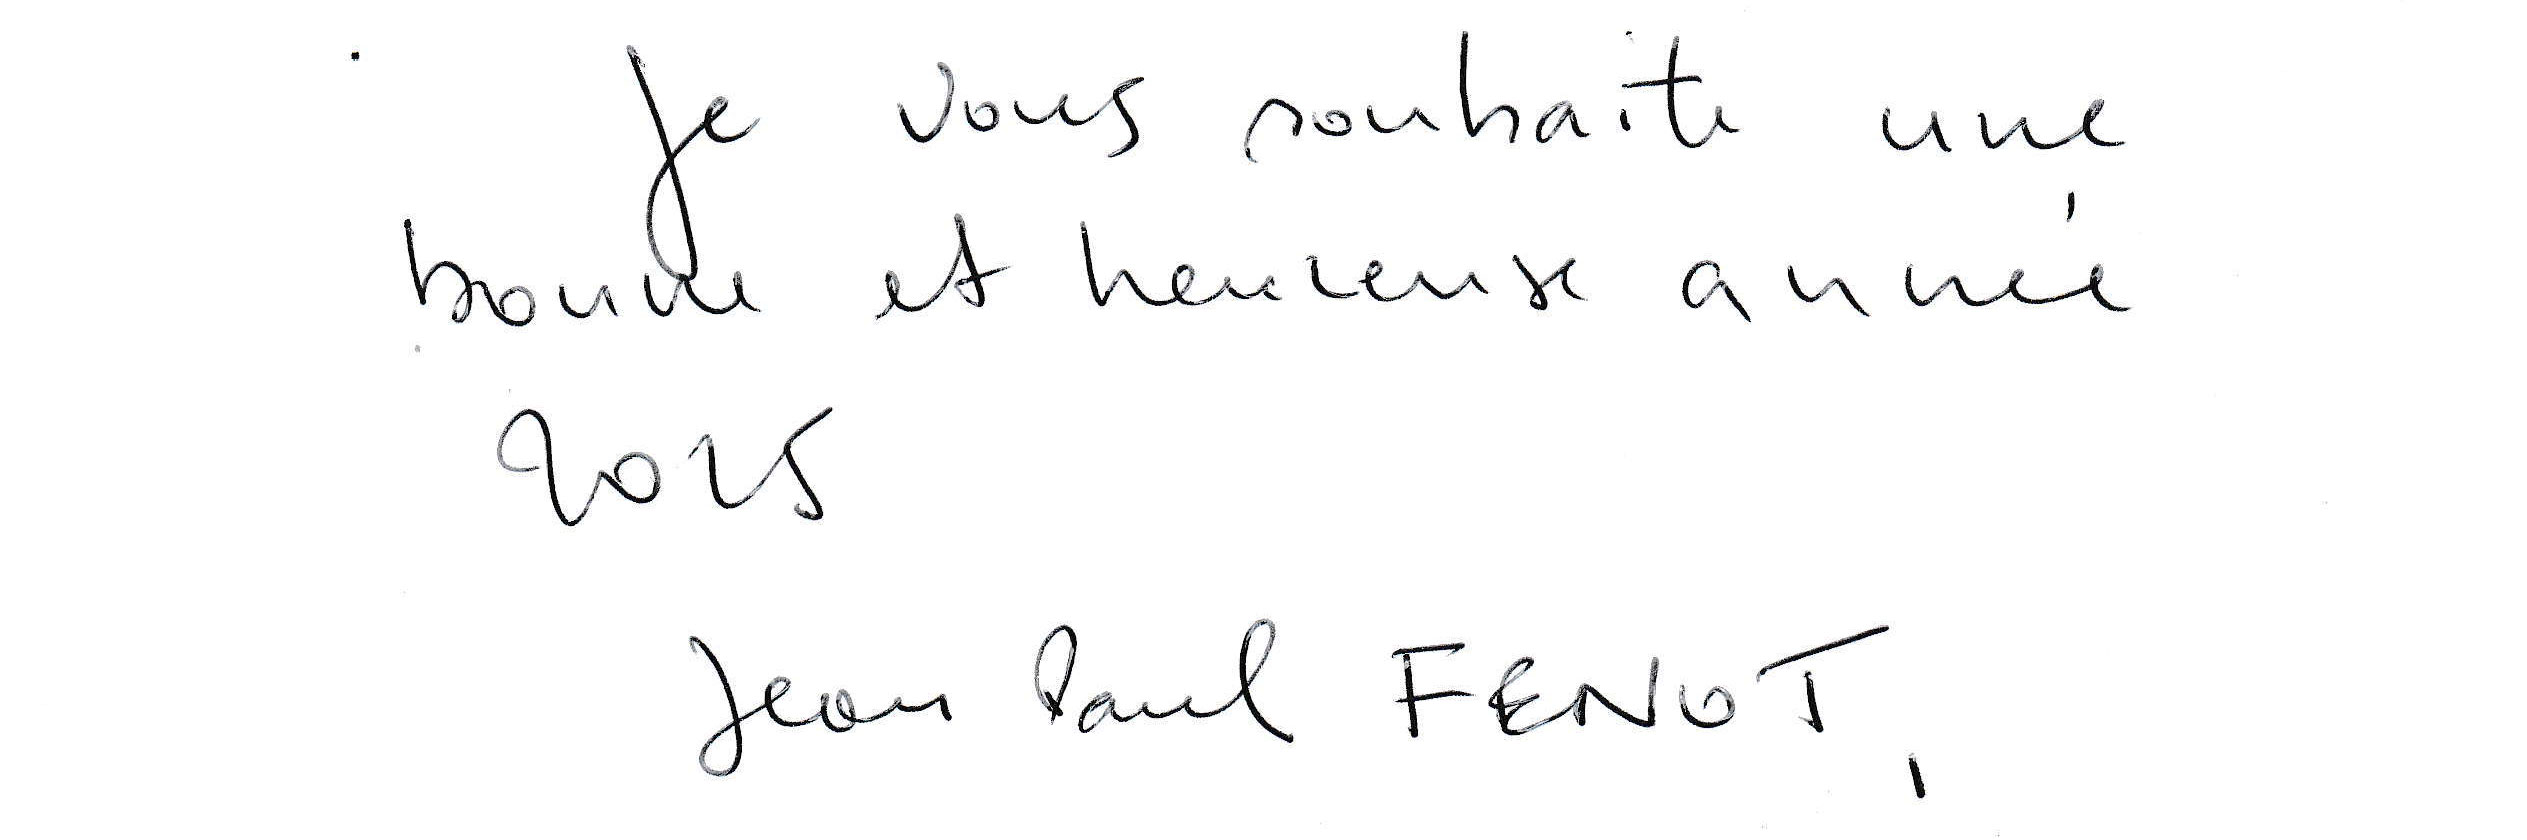 Je vous souhaite une
bonne et heureuse année
2025
Jean Paul FENOT,